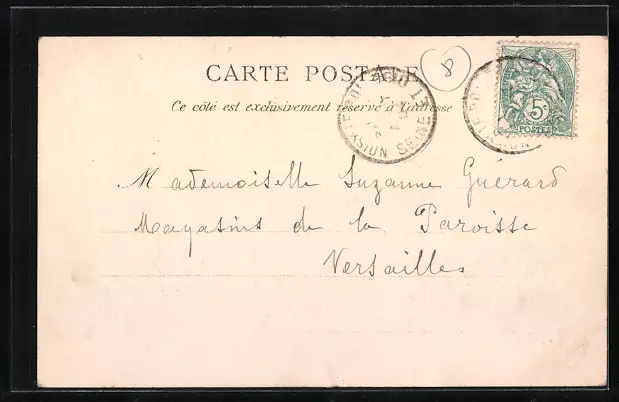 CARTE POSTALE
8
Ce côté est exclusivement réservé à l'adresse
SEINE ET OISE
5c
POSTES
Mademoiselle Suzanne Guérard
Magasins de la Paroisse
Versailles